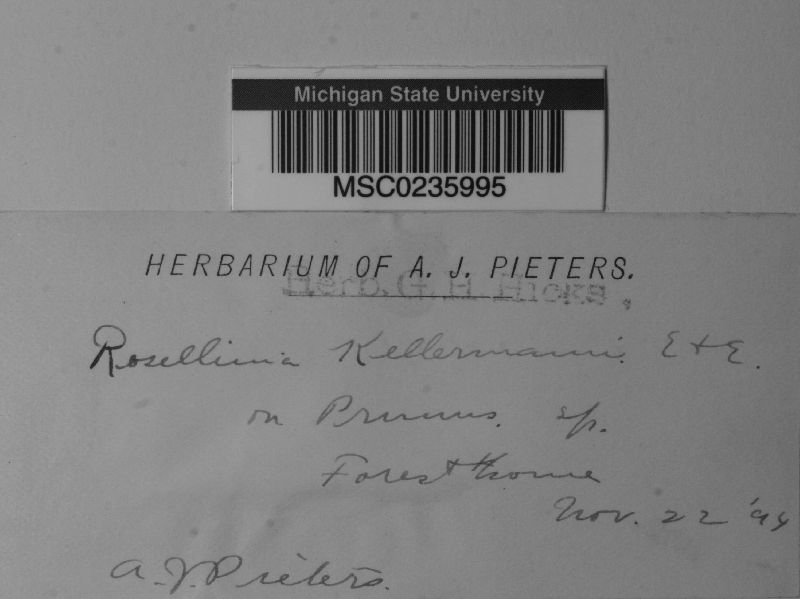 Michigan State University
MSC0235995
HERBARIUM OF A. J. PIETERS.
Herb. G. H. Hicks.
Rosellinia Kellermanni. E & E.
on Prunus. sp.
Forest Home
Nov. 22 '94
A. J. Pieters.